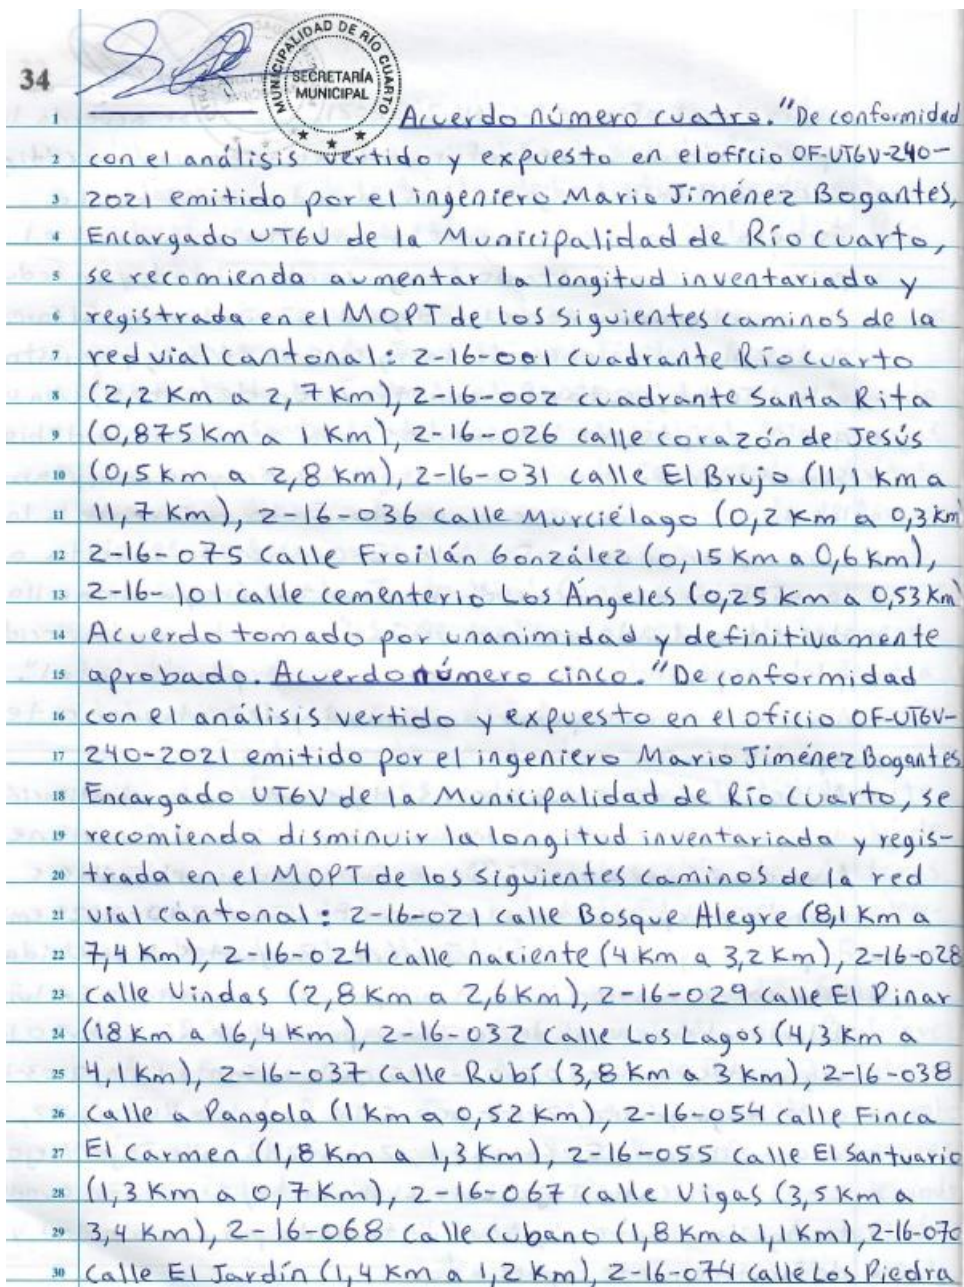 34
MUNICIPALIDAD DE RÍO CUARTO
SECRETARÍA
MUNICIPAL
1 Acuerdo número cuatro. "De conformidad
2 con el análisis vertido y expuesto en el oficio OF-UTGV-240-
3 2021 emitido por el ingeniero Mario Jiménez Bogantes,
4 Encargado UTGV de la Municipalidad de Río Cuarto,
5 se recomienda aumentar la longitud inventariada y
6 registrada en el MOPT de los siguientes caminos de la
7 red vial cantonal: 2-16-001 cuadrante Río Cuarto
8 (2,2 Km a 2,7 Km), 2-16-002 cuadrante Santa Rita
9 (0,875 Km a 1 Km), 2-16-026 calle corazón de Jesús
10 (0,5 Km a 2,8 Km), 2-16-031 calle El Brujo (11,1 Km a
11 11,7 Km), 2-16-036 calle Murciélago (0,2 Km a 0,3 km)
12 2-16-075 Calle Froilán González (0,15 Km a 0,6 Km),
13 2-16-101 calle cementerio Los Ángeles (0,25 Km a 0,53 Km)
14 Acuerdo tomado por unanimidad y definitivamente
15 aprobado. Acuerdo número cinco. "De conformidad
16 con el análisis vertido y expuesto en el oficio OF-UTGV-
17 240-2021 emitido por el ingeniero Mario Jiménez Bogantes
18 Encargado UTGV de la Municipalidad de Río Cuarto, se
19 recomienda disminuir la longitud inventariada y regis-
20 trada en el MOPT de los siguientes caminos de la red
21 vial cantonal: 2-16-021 calle Bosque Alegre (8,1 Km a
22 7,4 Km), 2-16-024 calle naciente (4 Km a 3,2 Km), 2-16-028
23 calle Vindas (2,8 Km a 2,6 Km), 2-16-029 calle El Pinar
24 (18 Km a 16,4 Km), 2-16-032 calle Los Lagos (4,3 Km a
25 4,1 Km), 2-16-037 calle Rubí (3,8 Km a 3 Km), 2-16-038
26 Calle a Pangola (1 Km a 0,52 Km), 2-16-054 calle Finca
27 El Carmen (1,8 Km a 1,3 Km), 2-16-055 calle El Santuario
28 (1,3 Km a 0,7 Km), 2-16-067 calle Vigas (3,5 Km a
29 3,4 Km), 2-16-068 calle Cubano (1,8 Km a 1,1 Km), 2-16-070
30 calle El Jardín (1,4 Km a 1,2 Km), 2-16-074 calle Los Piedra